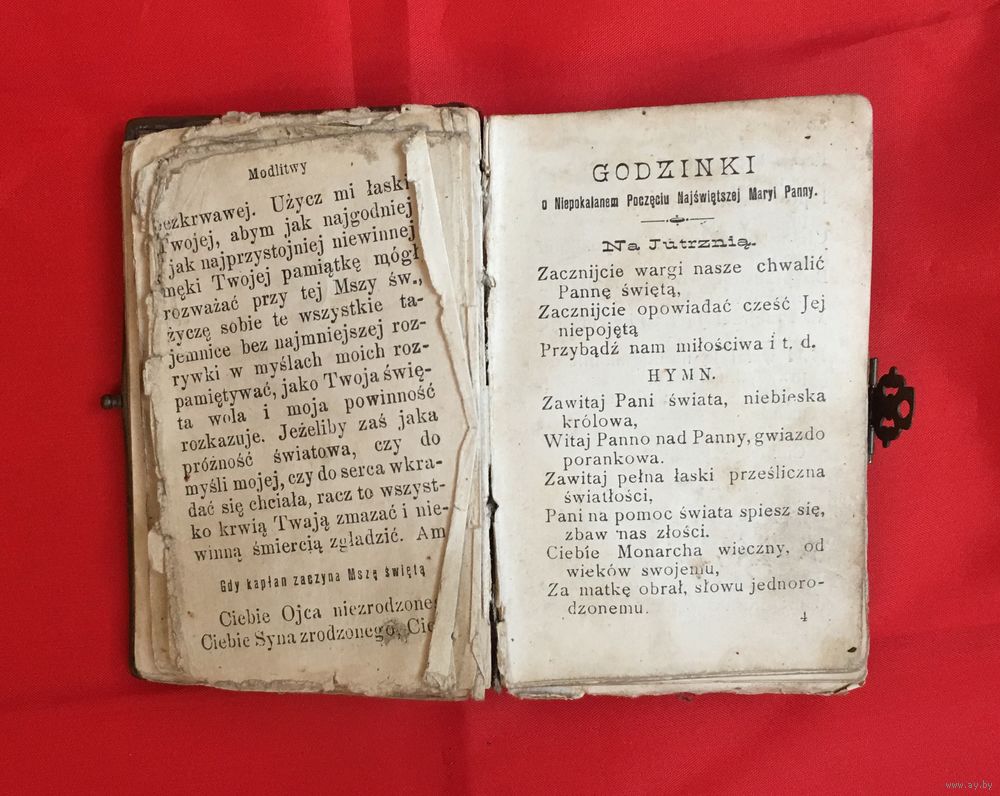 Modlitwy
ezkrwawej. Użycz mi łaski
Twojej, abym jak najgodniej
jak najprzystojniej niewinnej
męki Twojej pamiątkę mógł
rozważać przy tej Mszy św.,
życzę sobie te wszystkie ta-
jemnice bez najmniejszej roz-
rywki w myślach moich roz-
pamiętywać, jako Twoja świę-
ta wola i moja powinność
rozkazuje. Jeżeliby zaś jaka
próżność światowa, czy do
myśli mojej, czy do serca wkra-
dać się chciała, racz to wszyst-
ko krwią Twają zmazać i nie-
winną śmiercią zgładzić. Am
Gdy kapłan zaczyna Mszę świętą
Ciebie Ojca niezrodzone
Ciebie Syna zrodzonego, Cie
GODZINKI
o Niepokalanem Poczęciu Najświętszej Maryi Panny.
Na Jutrznią.
Zacznijcie wargi nasze chwalić
Pannę świętą,
Zacznijcie opowiadać cześć Jej
niepojętą
Przybądź nam miłościwa i t. d.
HYMN.
Zawitaj Pani świata, niebieska
królowa,
Witaj Panno nad Panny, gwiazdo
porankowa.
Zawitaj pełna łaski prześliczna
światłości,
Pani na pomoc świata spiesz się,
zbaw nas złości.
Ciebie Monarcha wieczny, od
wieków swojemu,
Za matkę obrał, słowu jednoro-
dzonemu.
4
www.ay.by